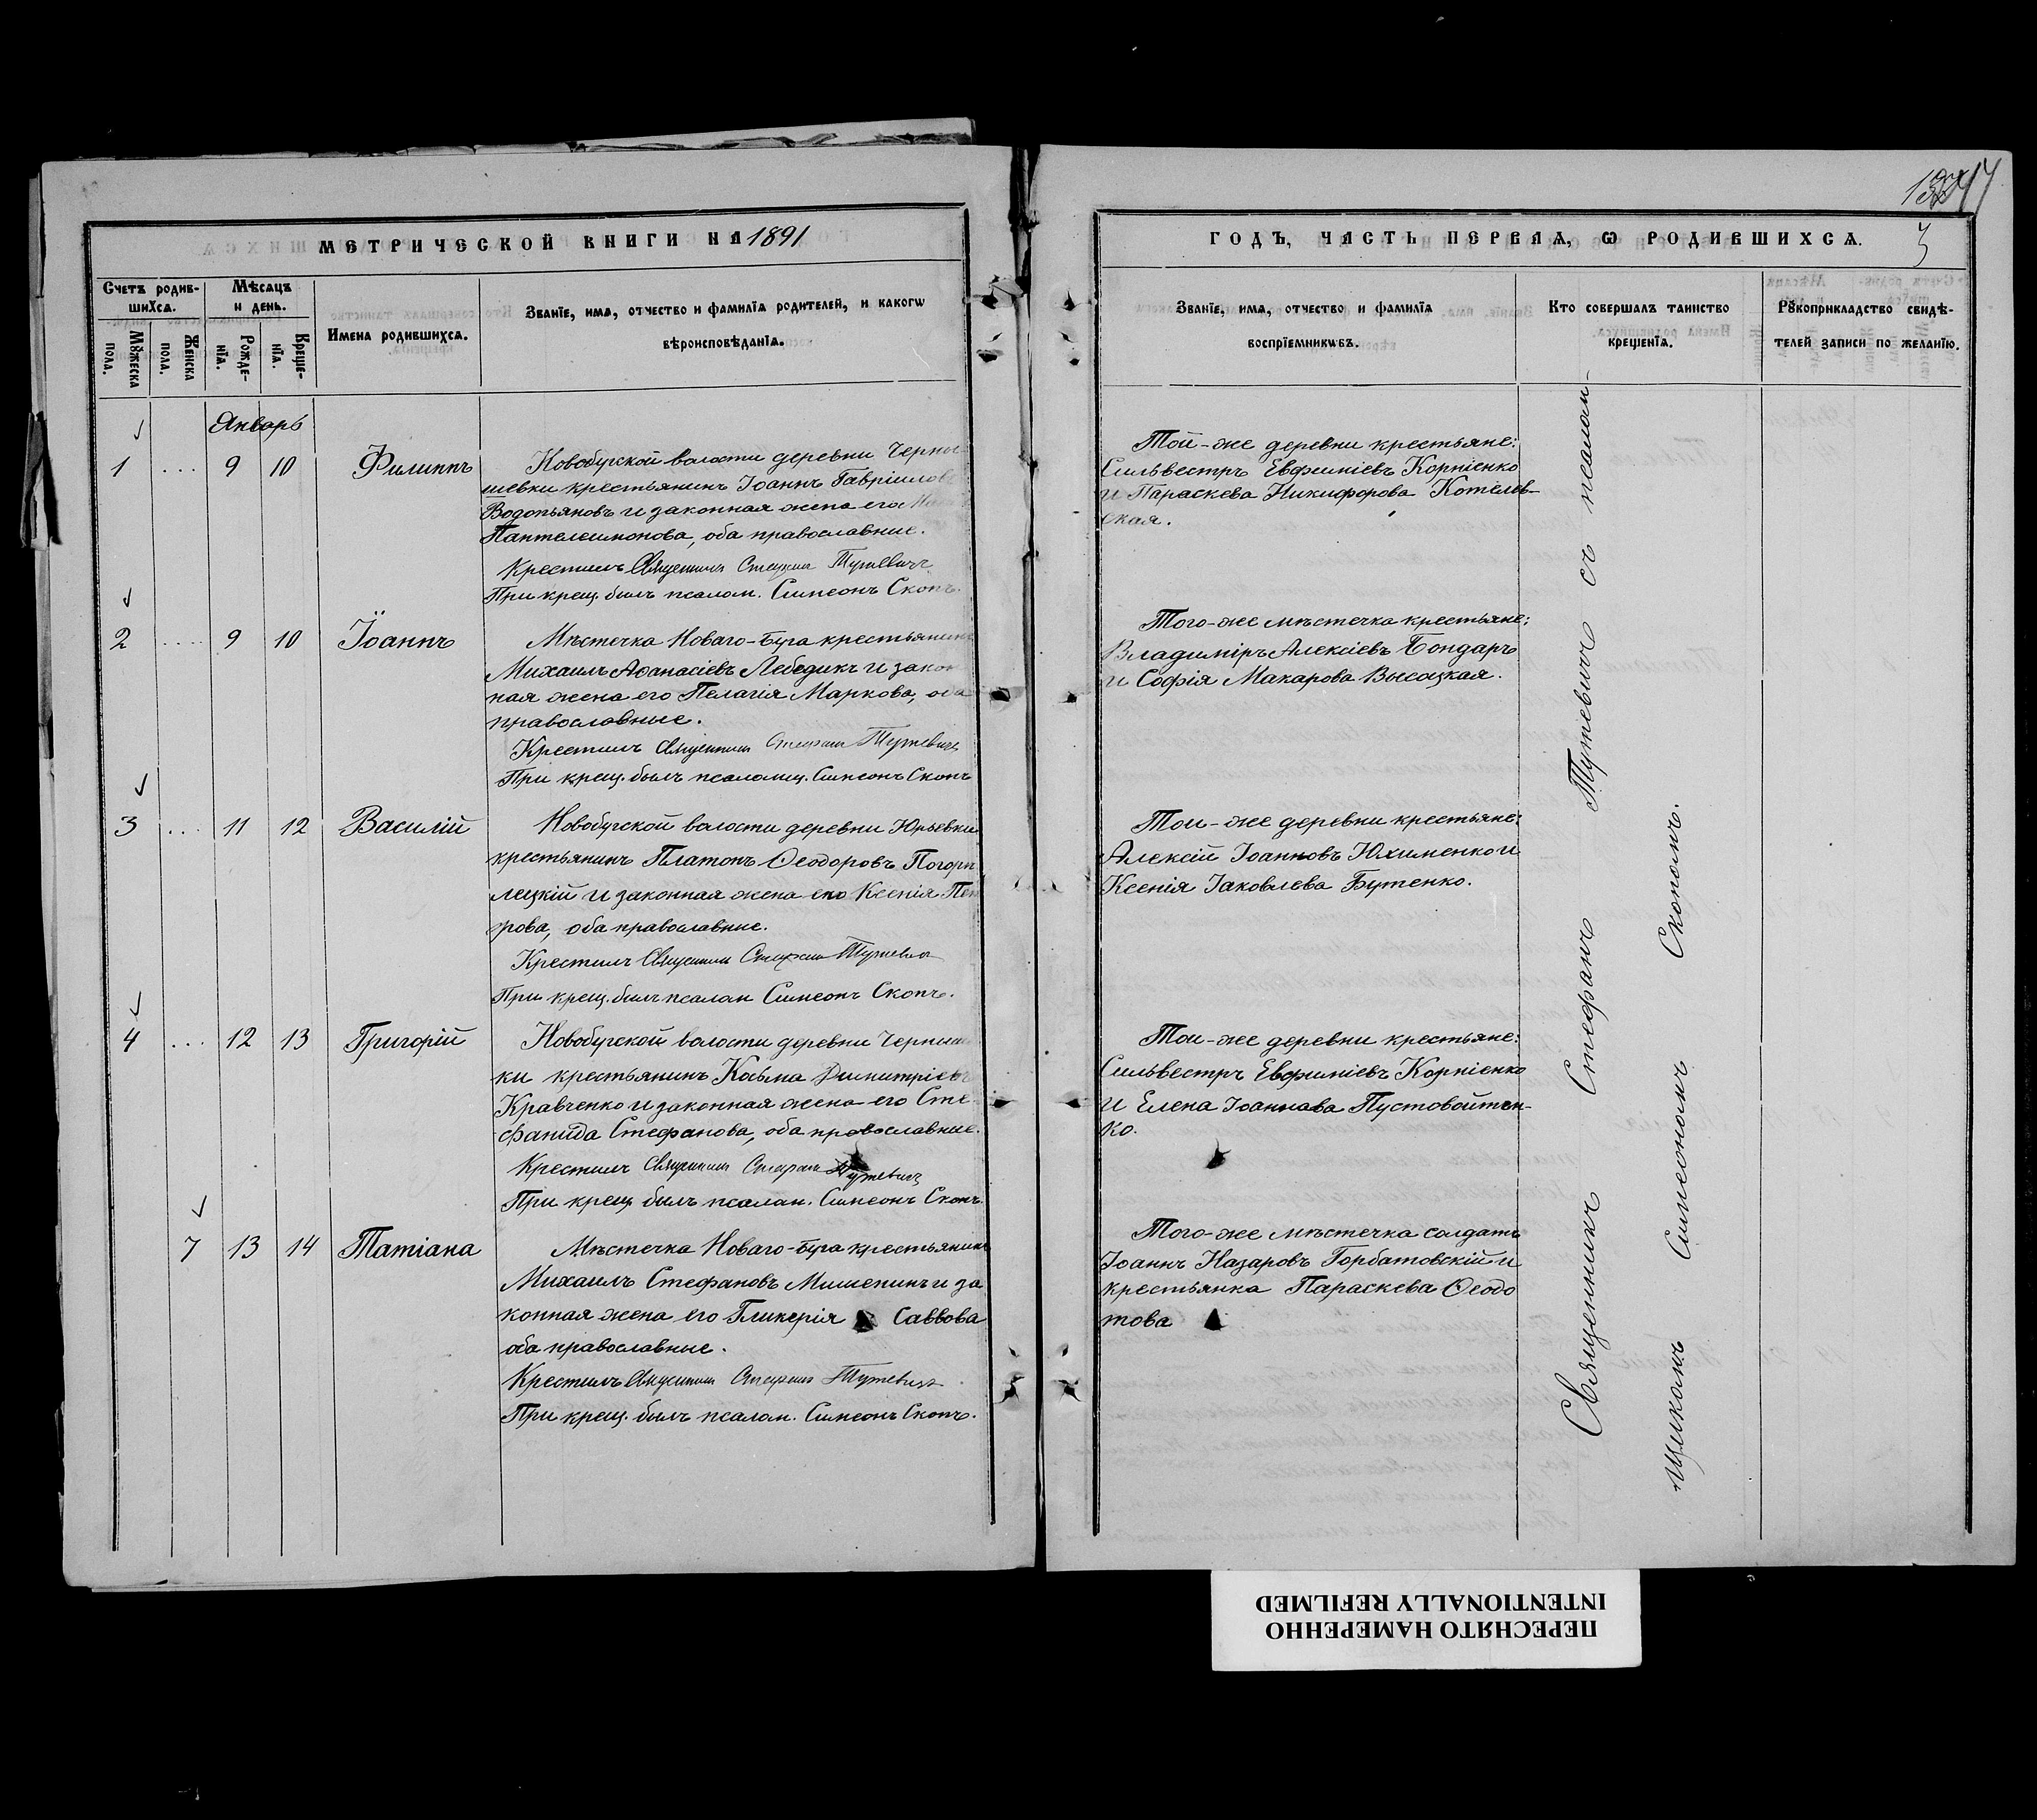 МЕТРИЧЕСКОЙ КНИГИ НА 1891
Счетъ родив-
шихсѧ.
Мѣсѧцъ
и день.
Мꙋжеска
пола.
Женска
пола.
Рожде-
нїѧ.
Креще-
нїѧ.
Имена родившихсѧ.
Званїе, имѧ, отчество и фамилїѧ родителей, и какогѡ
вѣроисповѣданїѧ.
Январь
1 ... 9 10 Филиппъ
Новобугской волости деревни Черны
шевки крестьянинъ Іоаннъ Гавріилов
Водопьяновъ и законная жена его
Пантелеимонова, оба православные.
Крестилъ Священникъ Стефанъ Тутевичъ
При крещ. былъ псалом. Симеонъ Скопъ.
2 .... 9 10 Іоаннъ
Мѣстечка Новаго-Буга крестьянинъ
Михаилъ Аѳанасіевъ Лебедикъ и закон
ная жена его Пелагія Маркова, оба
православные.
Крестилъ Священникъ Стефанъ Тутевичъ
При крещ. былъ псаломщ. Симеонъ Скопъ
3 ... 11 12 Василій
Новобугской волости деревни Юрьевки
крестьянинъ Платонъ Ѳеодоровъ Погорѣ
лецкій и законная жена его Ксенія Пет
рова, оба православные.
Крестилъ Священникъ Стефанъ Тутевичъ
При крещ. былъ псалом Симеонъ Скопъ.
4 ... 12 13 Григорій
Новобугской волости деревни Черныш
ки крестьянинъ Косьма Димитріевъ
Кравченко и законная жена его Сте
фанида Стефанова, оба православные.
Крестилъ Священникъ Стефанъ Тутевичъ
При крещ. былъ псалом. Симеонъ Скопъ.
7 13 14 Татіана
Мѣстечка Новаго-Буга крестьянинъ
Михаилъ Стефановъ Мишенинъ и за
конная жена его Гликерія Саввова
оба православные.
Крестилъ Священникъ Стефанъ Тутевичъ
При крещ. былъ псалом. Симеонъ Скопъ.
ГОДЪ, ЧАСТЬ ПЕРВАѦ, Ѡ РОДИВШИХСѦ.
3
Званїе, имѧ, отчество и фамилїѧ
воспрїемникѡвъ.
Кто совершалъ таинство
крещенїѧ.
Рꙋкоприкладство свидѣ-
телей записи по желанїю.
Той-же деревни крестьяне:
Сильвестръ Евфиміевъ Корніенко
и Параскева Никифорова Котелев-
ская.
Того-же мѣстечка крестьяне:
Владиміръ Алексіевъ Бондаръ
и Софія Макарова Высоцкая.
Той-же деревни крестьяне:
Алексій Іоанновъ Юхименко и
Ксенія Іаковлева Бутенко.
Той-же деревни крестьяне:
Сильвестръ Евфиміевъ Корніенко
и Елена Іоаннова Пустовойтен-
ко.
Того-же мѣстечка солдатъ
Іоаннъ Назаровъ Горбатовскій и
крестьянка Параскева Ѳеодо
това
Священникъ Стефанъ Тутевичъ съ псалом-
щикомъ Симеономъ Скопомъ.
ПЕРЕСНЯТО НАМЕРЕННО
INTENTIONALLY REFILMED